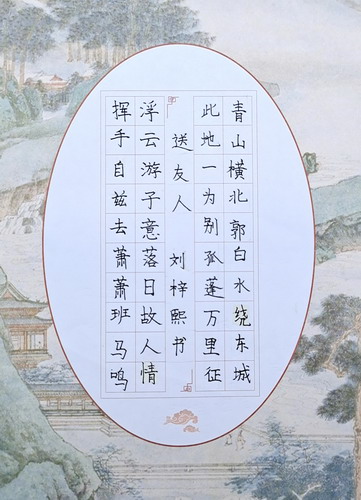 青山横北郭白水绕东城
此地一为别孤蓬万里征
送友人 刘梓熙书
浮云游子意落日故人情
挥手自兹去萧萧班马鸣